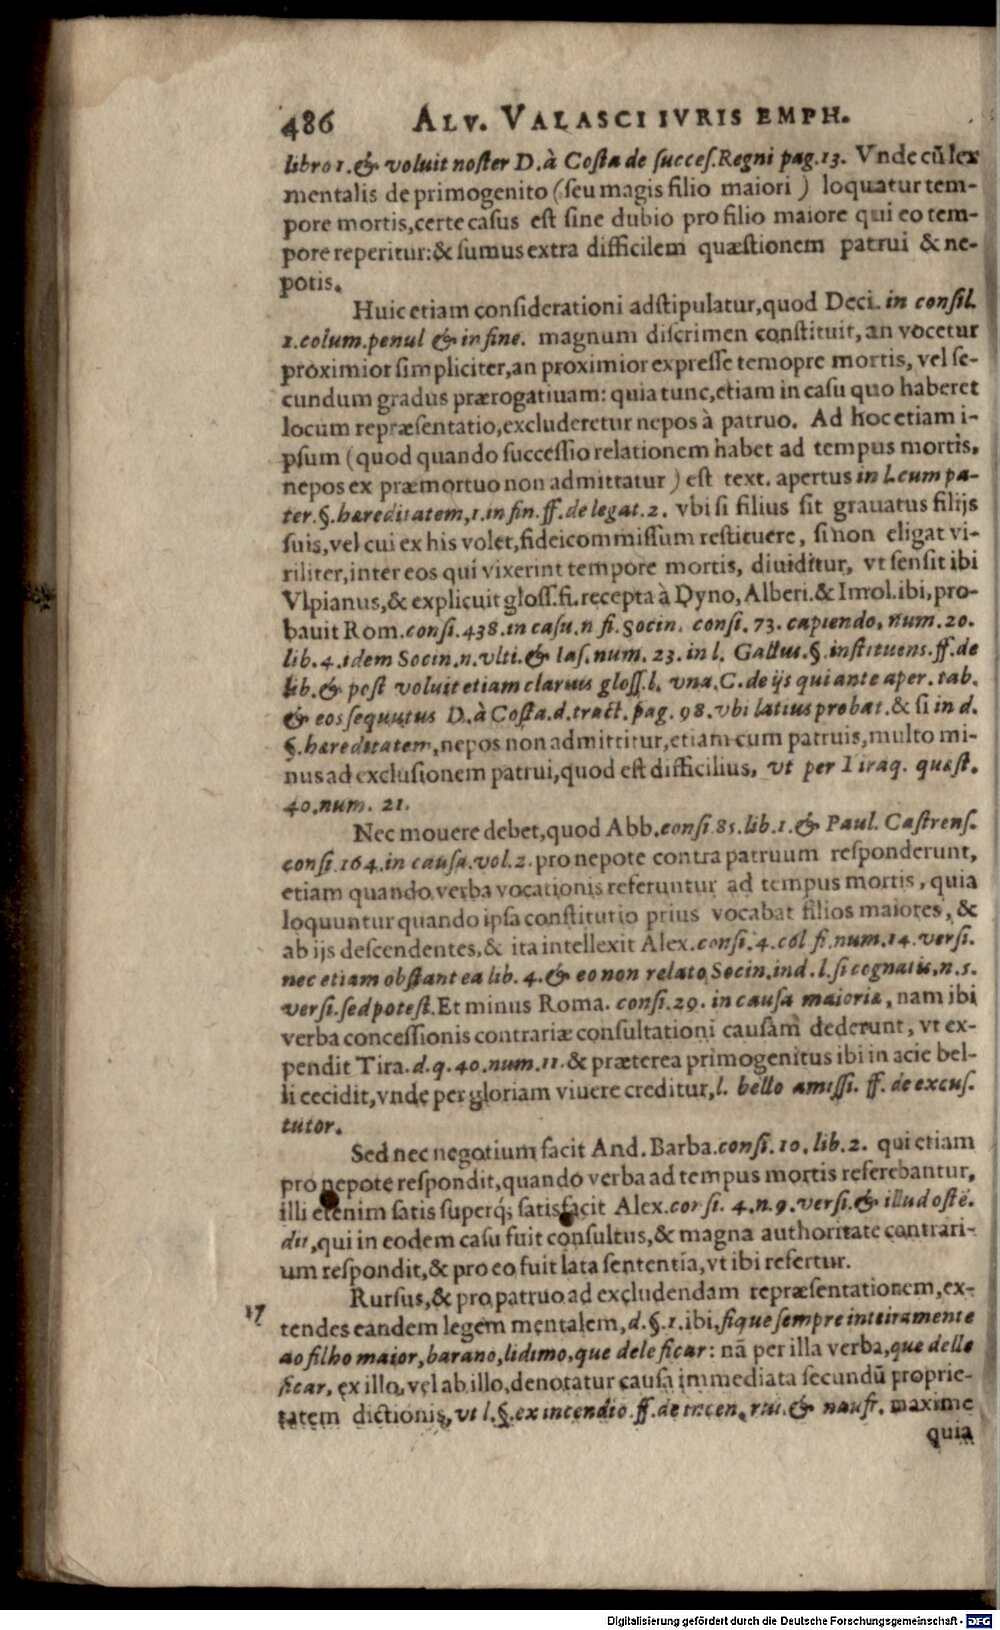 486 ALV. VALASCI IVRIS EMPH.
libro 1. & voluit noster D. à Costa de succes. Regni pag. 13. Vnde cũ lex
mentalis de primogenito (seu magis filio maiori) loquatur tem-
pore mortis, certe casus est sine dubio pro filio maiore qui eo tem-
pore reperitur: & sumus extra difficilem quæstionem patrui & ne-
potis.
Huic etiam considerationi adstipulatur, quod Deci. in consil.
1. colum. penul & in fine. magnum discrimen constituit, an vocetur
proximior simpliciter, an proximior expresse temopre mortis, vel se-
cundum gradus prærogatiuam: quia tunc, etiam in casu quo haberet
locum repræsentatio, excluderetur nepos à patruo. Ad hoc etiam i-
psum (quod quando successio relationem habet ad tempus mortis,
nepos ex præmortuo non admittatur) est text. apertus in l. cum pa-
ter. §. hæreditatem, 1. in fin. ff. de legat. 2. vbi si filius sit grauatus filijs
suis, vel cui ex his volet, fideicommissum restituere, si non eligat vi-
riliter, inter eos qui vixerint tempore mortis, diuiditur, vt sensit ibi
Vlpianus, & explicuit gloss. fi. recepta à Dyno, Alberi. & Imol. ibi, pro-
bauit Rom. consi. 438. in casu. n fi. Socin. consi. 73. capiendo, num. 20.
lib. 4. idem Socin. n. vlti. & Ias. num. 23. in l. Gallus. §. instituens. ff. de
lib. & post voluit etiam clarius gloss. l. vna. C. de ijs qui ante aper. tab.
& eos sequutus D. à Costa. d. tract. pag. 98. vbi latius probat. & si in d.
§. hæreditatem, nepos non admittitur, etiam cum patruis, multo mi-
nus ad exclusionem patrui, quod est difficilius, vt per Tiraq. quæst.
40. num. 21.
Nec mouere debet, quod Abb. consi 85. lib. 1. & Paul. Castrens.
consi. 164. in causa. vol. 2. pro nepote contra patruum responderunt,
etiam quando verba vocationis referuntur ad tempus mortis, quia
loquuntur quando ipsa constitutio prius vocabat filios maiores, &
ab ijs descendentes, & ita intellexit Alex. consi. 4. col fi. num. 14. versi.
nec etiam obstant ea lib. 4. & eo non relato Socin. in d. l. si cognatis, n. 5.
versi. sed potest. Et minus Roma. consi. 29. in causa maioriæ, nam ibi
verba concessionis contrariæ consultationi causam dederunt, vt ex-
pendit Tira. d. q. 40. num. 11. & præterea primogenitus ibi in acie bel-
li cecidit, vnde per gloriam viuere creditur, l. bello amissi. ff. de excus.
tutor.
Sed nec negotium facit And. Barba. consi. 10. lib. 2. qui etiam
pro nepote respondit, quando verba ad tempus mortis referebantur,
illi etenim satis superq́; satisfacit Alex. consi. 4. n. 9. versi. & illud ostẽ-
dit, qui in eodem casu fuit consultus, & magna authoritate contrari-
um respondit, & pro eo fuit lata sententia, vt ibi refertur.
17 Rursus, & pro patruo ad excludendam repræsentationem, ex-
tendes eandem legem mentalem, d. §. 1. ibi, fique sempre inteiramente
ao filho maior, barano, lidimo, que dele ficar: nã per illa verba, que delle
ficar, ex illo, vel ab illo, denotatur causa immediata secundũ proprie-
tatem dictionis, vt l. §. ex incendio. ff. de incen. rui. & naufr. maxime
quia
Digitalisierung gefördert durch die Deutsche Forschungsgemeinschaft - DFG